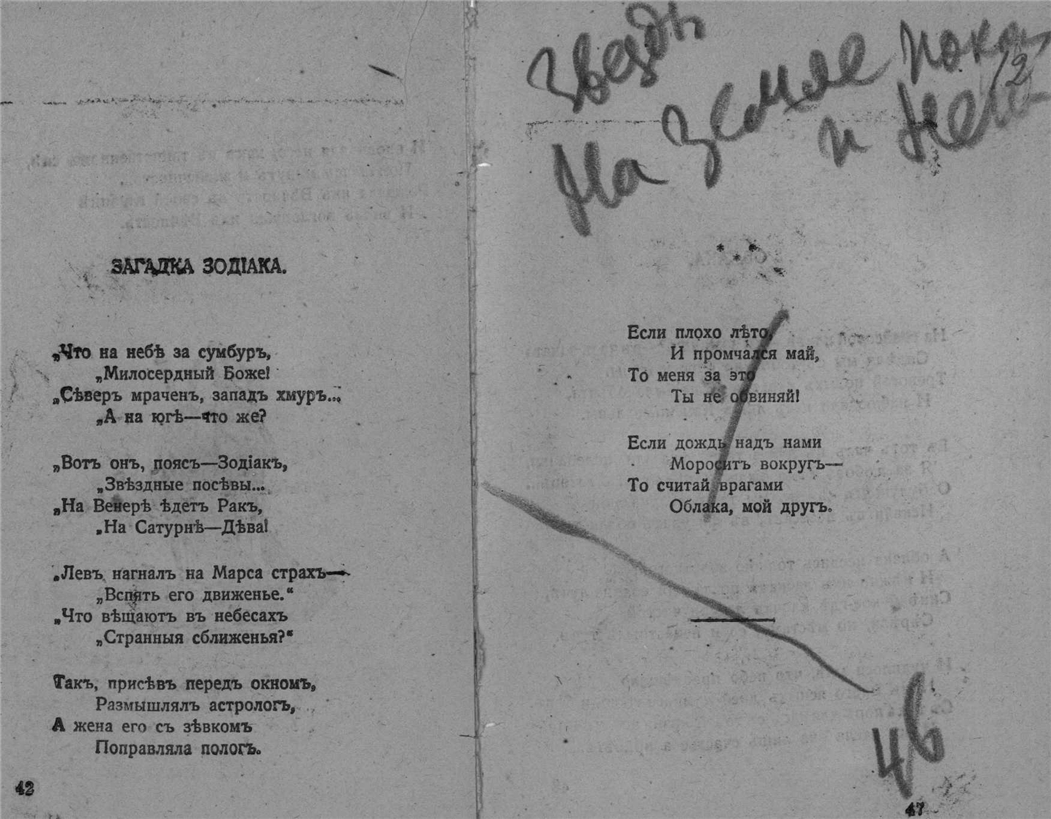 ЗАГАДКА ЗОДІАКА.
„Что на небѣ за сумбуръ,
„Милосердный Боже!
„Сѣверъ мраченъ, западъ хмуръ...
„А на югѣ—что же?
„Вотъ онъ, поясъ—Зодіакъ,
„Звѣздные посѣвы...
„На Венерѣ ѣдетъ Ракъ,
„На Сатурнѣ—Дѣва!
„Левъ нагналъ на Марса страхъ—
„Вспять его движенье.“
„Что вѣщаютъ въ небесахъ
„Странныя сближенья?“
Такъ, присѣвъ передъ окномъ,
Размышлялъ астрологъ,
А жена его съ зѣвкомъ
Поправляла пологъ.
42
На Земле
и
12
* * *
Если плохо лѣто,
И промчался май,
То меня за это
Ты не обвиняй!
Если дождь надъ нами
Мороситъ вокругъ—
То считай врагами
Облака, мой другъ.
47